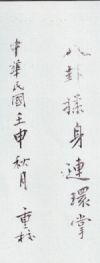 八卦揉身連環掌
中華民國壬申秋月 重校